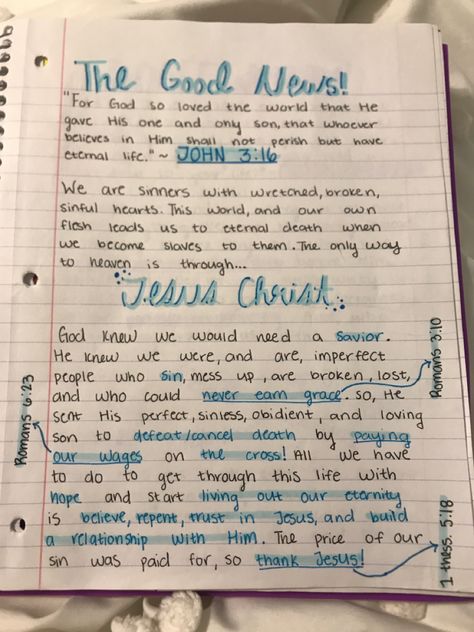 The Good News!
"For God so loved the world that He
gave His one and only son, that whoever
believes in Him shall not perish but have
eternal life." ~ JOHN 3:16
We are sinners with wretched, broken,
sinful hearts. This world, and our own
flesh leads us to eternal death when
we become slaves to them. The only way
to heaven is through...
Jesus Christ
God knew we would need a savior.
He knew we were, and are, imperfect
people who sin, mess up, are broken, lost,
and who could never earn grace. So, He
sent His perfect, sinless, obidient, and loving
son to defeat/cancel death by paying
our wages on the cross! All we have
to do to get through this life with
hope and start living out our eternity
is believe, repent, trust in Jesus, and build
a relationship with Him. The price of our
sin was paid for, so thank Jesus!
Romans 3:10
Romans 6:23
1 thess. 5:18